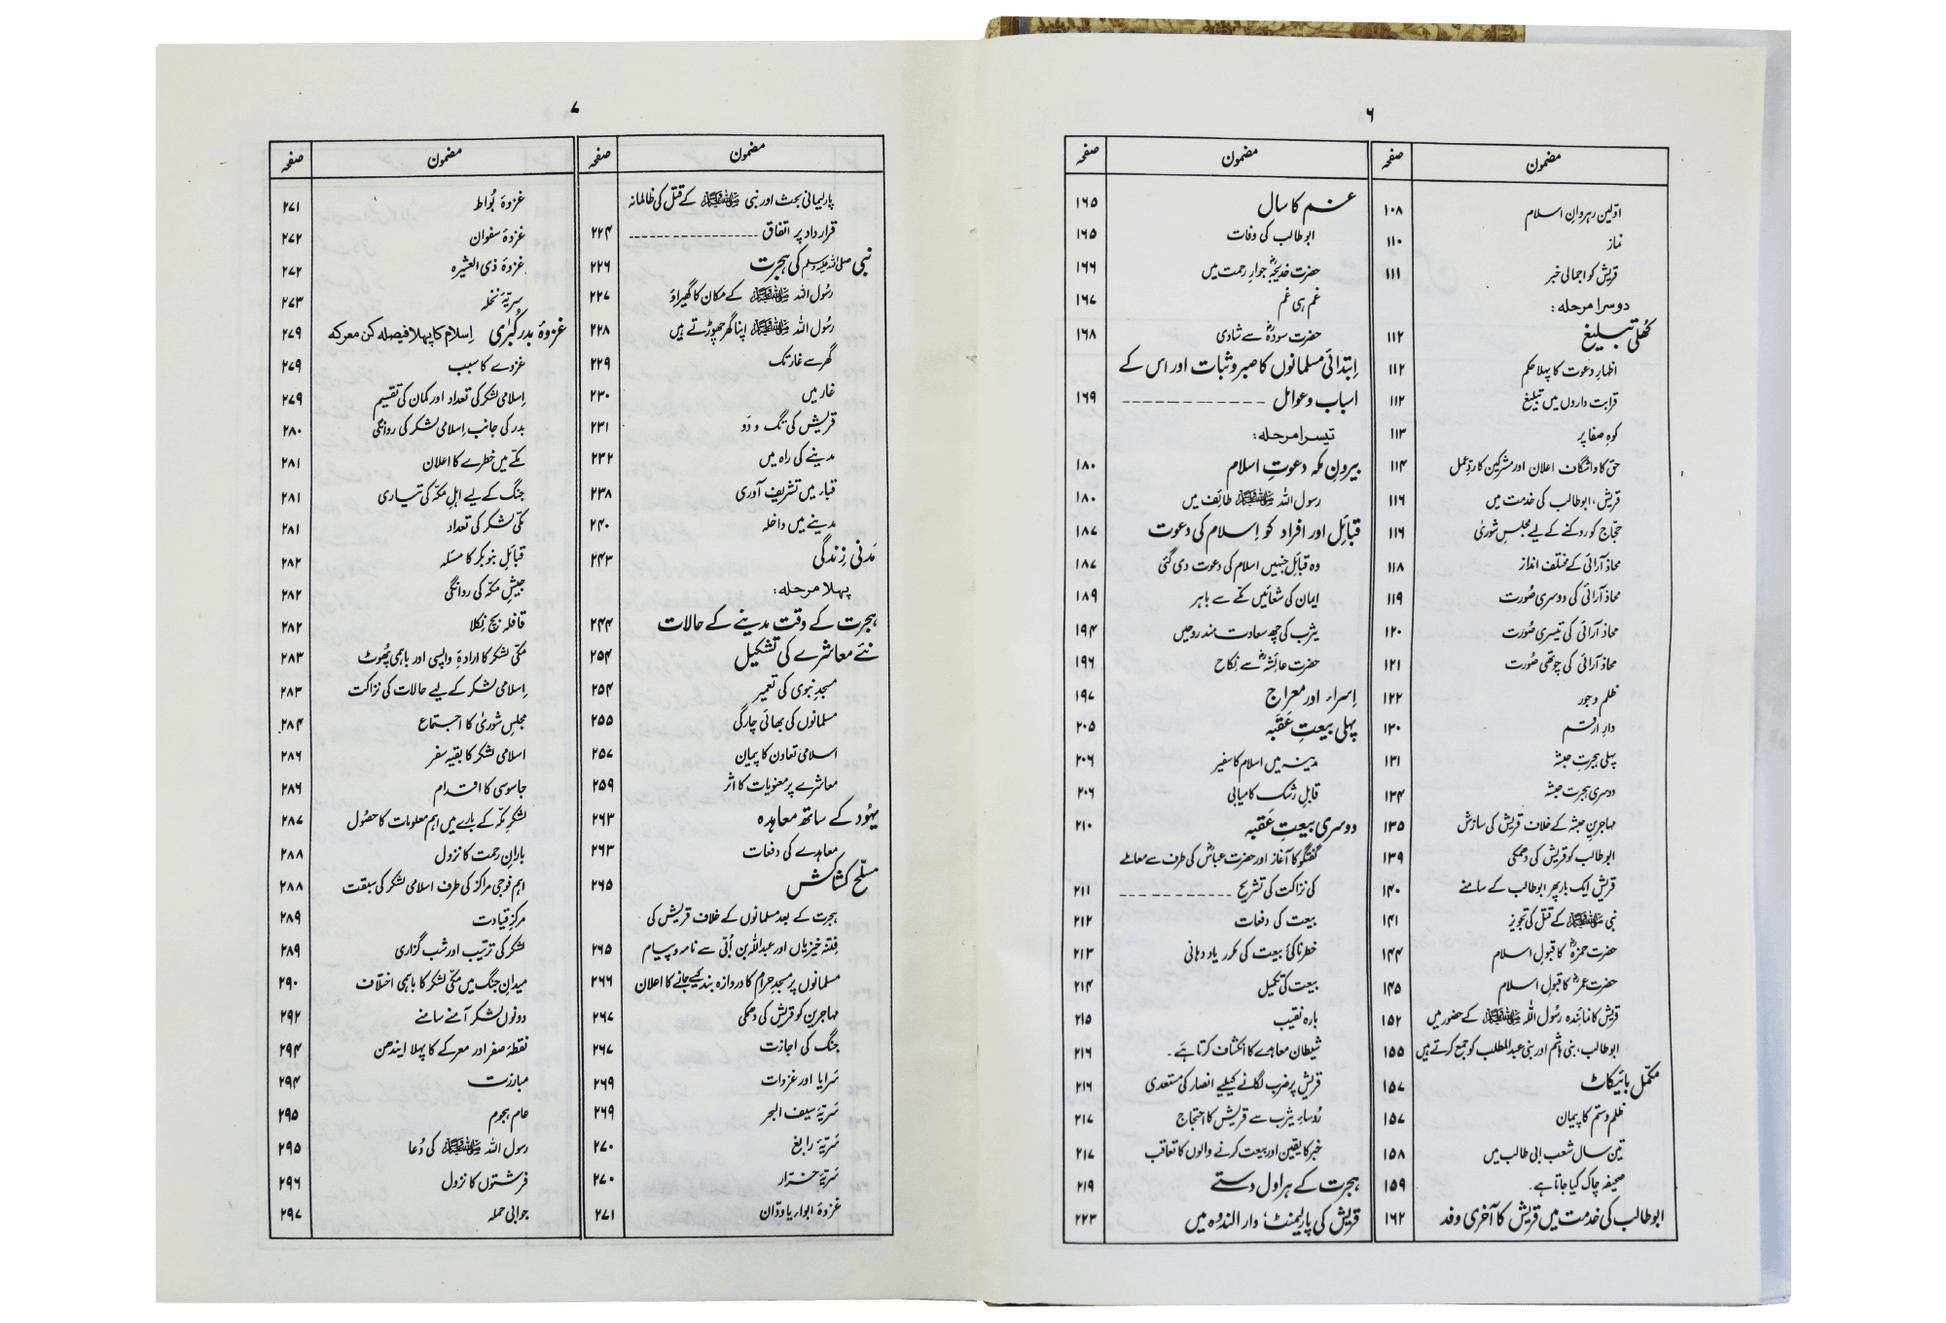 ۶
مضمون صفحہ
اوّلین رہروانِ اسلام ۱۰۸
نماز ۱۱۰
قریش کو اجمالی خبر ۱۱۱
دوسرا مرحلہ:
کھُلی تبلیغ ۱۱۲
اظہارِ دعوت کا پہلا حکم ۱۱۲
قرابت داروں میں تبلیغ ۱۱۲
کوہِ صفا پر ۱۱۳
حق کا واشگاف اعلان اور مشرکین کا ردِّعمل ۱۱۴
قریش، ابوطالب کی خدمت میں ۱۱۶
حجّاج کو روکنے کے لیے مجلسِ شوریٰ ۱۱۶
محاذ آرائی کے مختلف انداز ۱۱۸
محاذ آرائی کی دوسری صُورت ۱۱۹
محاذ آرائی کی تیسری صُورت ۱۲۰
محاذ آرائی کی چوتھی صُورت ۱۲۱
ظلم و جور ۱۲۲
دارِ ارقم ۱۳۰
پہلی ہجرتِ حبشہ ۱۳۱
دوسری ہجرتِ حبشہ ۱۳۴
مہاجرینِ حبشہ کے خلاف قریش کی سازش ۱۳۵
ابوطالب کو قریش کی دھمکی ۱۳۹
قریش ایک بار پھر ابوطالب کے سامنے ۱۴۰
نبی ﷺ کے قتل کی تجویز ۱۴۱
حضرت حمزہؓ کا قبولِ اسلام ۱۴۴
حضرت عمرؓ کا قبولِ اسلام ۱۴۵
قریش کا نمائندہ رسُول اللہ ﷺ کے حضور میں ۱۵۲
ابوطالب، بنی ہاشم اور بنی عبدالمطلب کو جمع کرتے ہیں ۱۵۵
مکمّل بائیکاٹ ۱۵۷
ظلم و ستم کا پیمان ۱۵۷
تین سال شعب ابی طالب میں ۱۵۸
صحیفہ چاک کیا جاتا ہے۔ ۱۵۹
ابوطالب کی خدمت میں قریش کا آخری وفد ۱۶۲
مضمون صفحہ
غم کا سال ۱۶۵
ابوطالب کی وفات ۱۶۵
حضرت خدیجہؓ جوارِ رحمت میں ۱۶۶
غم ہی غم ۱۶۷
حضرت سودہؓ سے شادی ۱۶۸
اِبتدائی مسلمانوں کا صبر و ثبات اور اس کے
اسباب و عوامل ۱۶۹
تیسرا مرحلہ:
بیرونِ مکہ دعوتِ اسلام ۱۸۰
رسول اللہ ﷺ طائف میں ۱۸۰
قبائل اور افراد کو اِسلام کی دعوت ۱۸۷
وہ قبائل جنہیں اسلام کی دعوت دی گئی ۱۸۷
ایمان کی شعائیں مکّے سے باہر ۱۸۹
یثرب کی چھ سعادت مند روحیں ۱۹۴
حضرت عائشہؓ سے نکاح ۱۹۶
اِسراء اور معراج ۱۹۷
پہلی بیعتِ عَقَبہ ۲۰۵
مدینہ میں اسلام کا سفیر ۲۰۶
قابلِ رشک کامیابی ۲۰۶
دوسری بیعتِ عَقَبہ ۲۱۰
گفتگو کا آغاز اور حضرت عباسؓ کی طرف سے معاملے
کی نزاکت کی تشریح ۲۱۱
بیعت کی دفعات ۲۱۲
خطرناکیٔ بیعت کی مکرر یاد دہانی ۲۱۳
بیعت کی تکمیل ۲۱۴
بارہ نقیب ۲۱۵
شیطان معاہدے کا انکشاف کرتا ہے۔ ۲۱۶
قریش پر ضرب لگانے کیلیے انصار کی مستعدی ۲۱۶
رُوساءِ یثرب سے قریش کا احتجاج ۲۱۷
خبر کا یقین اور بیعت کرنے والوں کا تعاقب ۲۱۷
ہجرت کے ہراول دستے ۲۱۹
قریش کی پارلیمنٹ، دار الندوہ میں ۲۲۳
۷
مضمون صفحہ
پارلیمانی بحث اور نبی ﷺ کے قتل کی ظالمانہ
قرارداد پر اتفاق ۲۲۴
نبی ﷺ کی ہجرت ۲۲۶
رسُول اللہ ﷺ کے مکان کا گھیراؤ ۲۲۷
رسُول اللہ ﷺ اپنا گھر چھوڑتے ہیں ۲۲۸
گھر سے غار تک ۲۲۹
غار میں ۲۳۰
قریش کی تگ و دَو ۲۳۱
مدینے کی راہ میں ۲۳۲
قباء میں تشریف آوری ۲۳۸
مدینے میں داخلہ ۲۴۰
مَدنی زندگی ۲۴۳
پہلا مرحلہ:
ہجرت کے وقت مدینے کے حالات ۲۴۴
نئے معاشرے کی تشکیل ۲۵۴
مسجدِ نبوی کی تعمیر ۲۵۴
مسلمانوں کی بھائی چارگی ۲۵۵
اسلامی تعاون کا پیمان ۲۵۷
معاشرے پر معنویات کا اثر ۲۵۹
یہُود کے ساتھ معاہدہ ۲۶۳
معاہدے کی دفعات ۲۶۳
مسلّح کشاکش ۲۶۵
ہجرت کے بعد مسلمانوں کے خلاف قریش کی
فتنہ خیزیاں اور عبداللہ بن اُبیّ سے نامہ و پیام ۲۶۵
مسلمانوں پر مسجدِ حرام کا دروازہ بند کیے جانے کا اعلان ۲۶۶
مہاجرین کو قریش کی دھمکی ۲۶۷
جنگ کی اجازت ۲۶۷
سَرایا اور غزوات ۲۶۹
سَریّۂ سیف البحر ۲۶۹
سَریّۂ رابغ ۲۷۰
سَریّۂ خرّار ۲۷۰
غزوۂ ابواء یا ودّان ۲۷۱
مضمون صفحہ
غزوۂ بُواط ۲۷۱
غزوۂ سفوان ۲۷۲
غزوۂ ذی العشیرہ ۲۷۲
سریّۂ نخلہ ۲۷۳
غزوۂ بدر کُبریٰ اِسلام کا پہلا فیصلہ کن معرکہ ۲۷۹
غزوے کا سبب ۲۷۹
اِسلامی لشکر کی تعداد اور کمان کی تقسیم ۲۷۹
بدر کی جانب اِسلامی لشکر کی روانگی ۲۸۰
مکّے میں خطرے کا اعلان ۲۸۱
جنگ کے لیے اہلِ مکّہ کی تیاری ۲۸۱
مکّی لشکر کی تعداد ۲۸۱
قبائل بنو بکر کا مسئلہ ۲۸۲
جیشِ مکّہ کی روانگی ۲۸۲
قافلہ بچ نکلا ۲۸۲
مکّی لشکر کا ارادۂ واپسی اور باہمی پھُوٹ ۲۸۳
اِسلامی لشکر کے لیے حالات کی نزاکت ۲۸۳
مجلسِ شوریٰ کا اجتماع ۲۸۴
اسلامی لشکر کا بقیہ سفر ۲۸۶
جاسوسی کا اقدام ۲۸۶
لشکرِ مکّہ کے بارے میں اہم معلومات کا حصُول ۲۸۷
بارانِ رحمت کا نزول ۲۸۸
اہم فوجی مراکز کی طرف اسلامی لشکر کی سبقت ۲۸۸
مرکزِ قیادت ۲۸۹
لشکر کی ترتیب اور شب گزاری ۲۸۹
میدانِ جنگ میں مکّی لشکر کا باہمی اختلاف ۲۹۰
دونوں لشکر آمنے سامنے ۲۹۲
نقطۂ صفر اور معرکے کا پہلا ایندھن ۲۹۴
مبارزت ۲۹۴
عام ہجوم ۲۹۵
رسول اللہ ﷺ کی دُعا ۲۹۵
فرشتوں کا نزول ۲۹۶
جوابی حملہ ۲۹۷